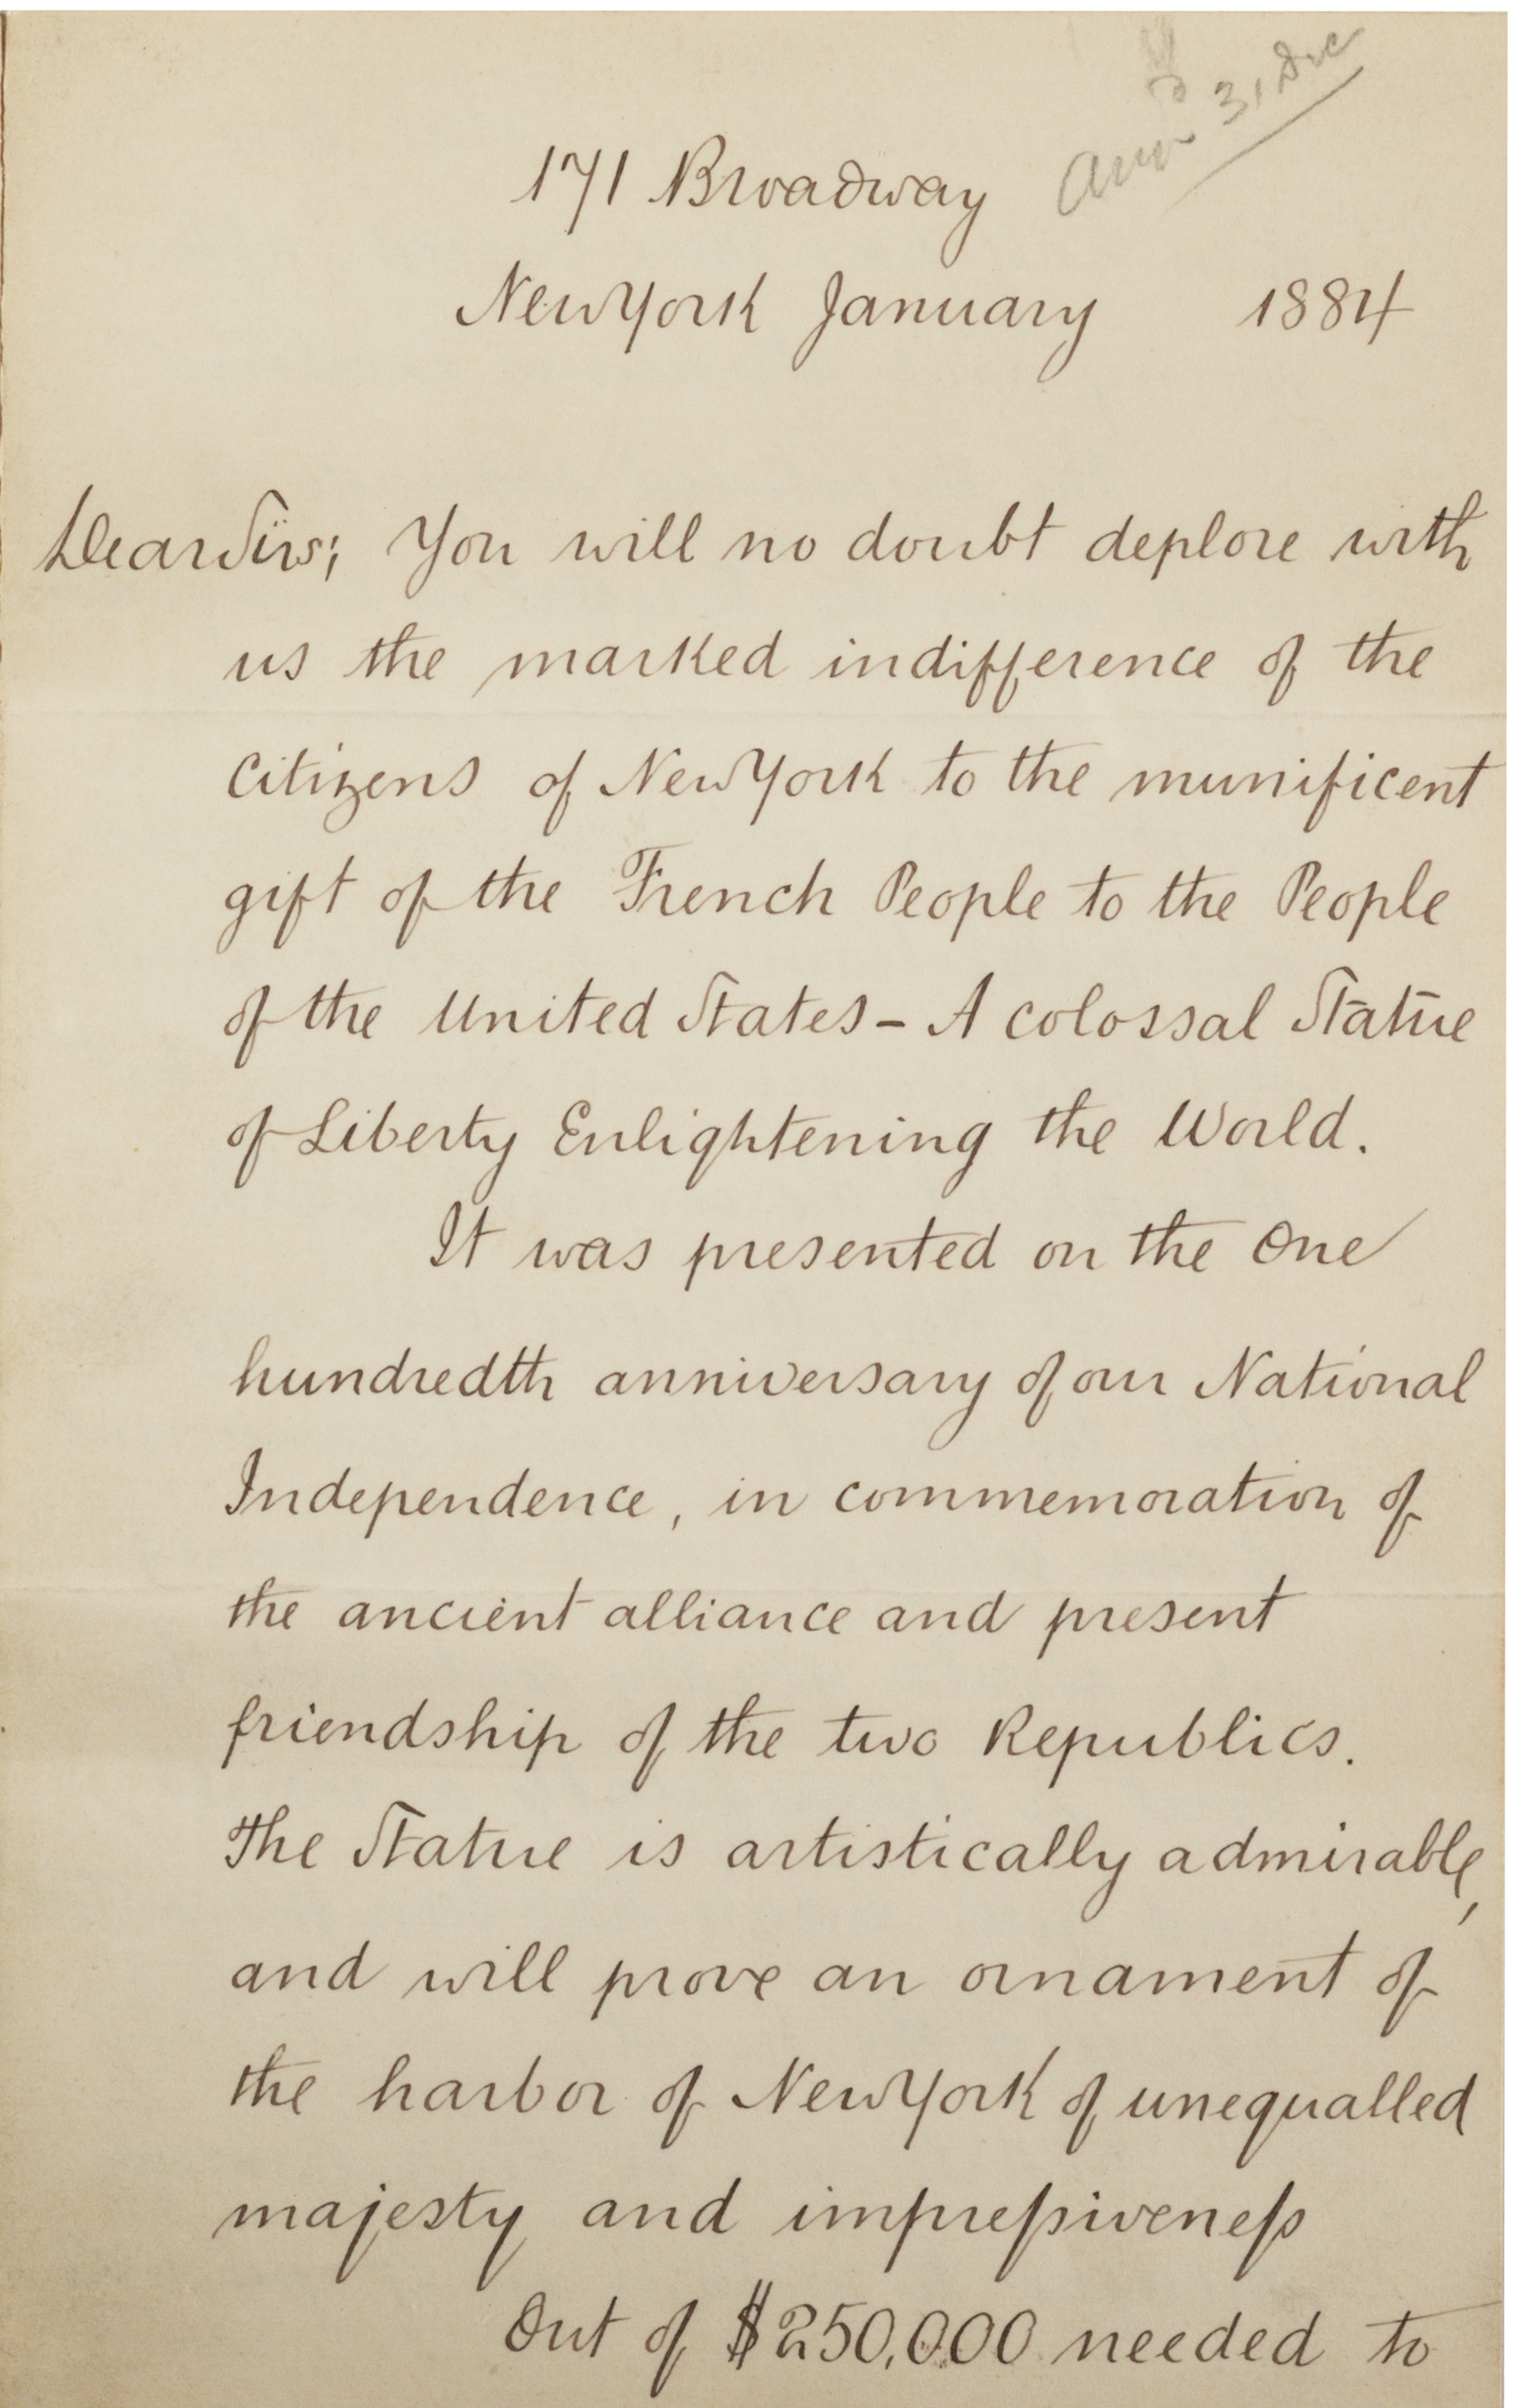 31 Dec
171 Broadway
New York January 1884
Dear Sirs; You will no doubt deplore with
us the marked indifference of the
Citizens of New York to the munificent
gift of the French People to the People
of the United States - A colossal Statue
of Liberty Enlightening the World.
It was presented on the One
hundredth anniversary of our National
Independence, in commemoration of
the ancient alliance and present
friendship of the two Republics.
The Statue is artistically admirable,
and will prove an ornament of
the harbor of New York of unequalled
majesty and impressiveness
Out of $250,000 needed to